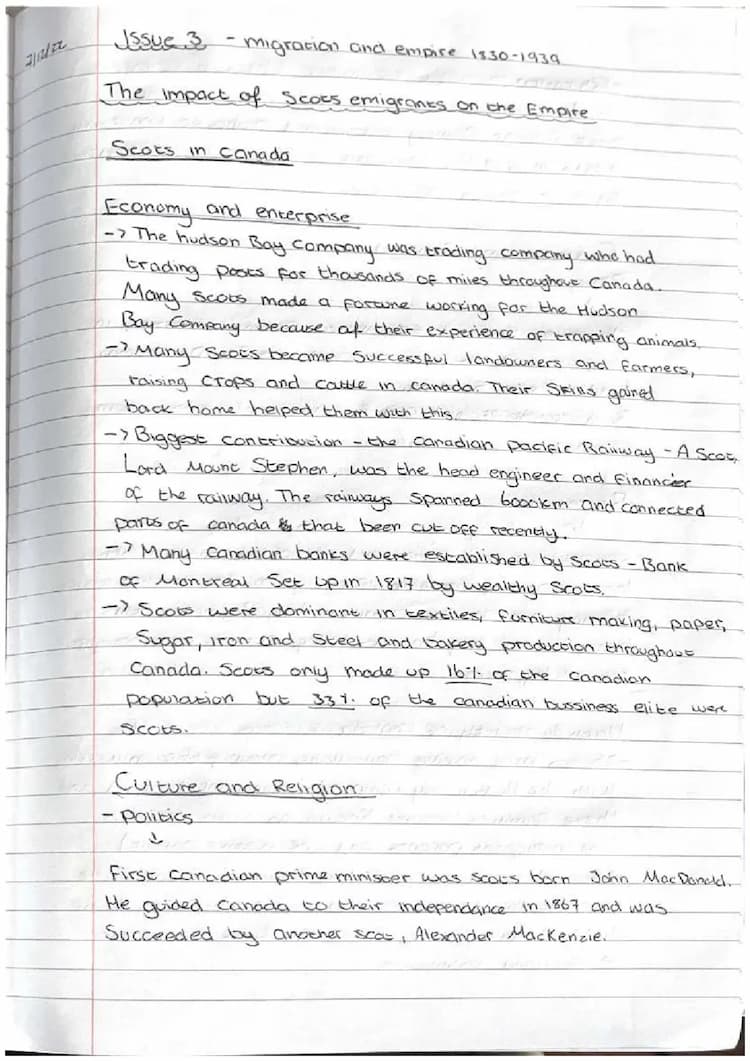 7/12/22
Issue 3 - migration and empire 1830-1939
The impact of Scots emigrants on the Empire
Scots in Canada
Economy and enterprise
-> The hudson Bay Company was trading company who had
trading posts for thousands of miles throughout Canada.
Many Scots made a fortune working for the Hudson
Bay Company because of their experience of trapping animals.
-> Many Scots became Successful landowners and farmers,
raising crops and cattle in canada. Their Skills gained
back home helped them with this.
-> Biggest contribution - the Canadian Pacific Railway - A Scot,
Lord Mount Stephen, was the head engineer and financier
of the railway. The railways spanned 6000km and connected
parts of canada that been cut off recently.
-> Many Canadian banks were established by Scots - Bank
of Montreal Set up in 1817 by wealthy Scots.
-> Scots were dominant in textiles, furniture making, paper,
Sugar, iron and steel and bakery production throughout
Canada. Scots only made up 16% of the Canadian
population but 33% of the canadian bussiness elite were
Scots.
Culture and Religion
- Politics
↓
First Canadian prime minister was scots born John MacDonald.
He guided Canada to their independance in 1867 and was
Succeeded by another scot, Alexander MacKenzie.